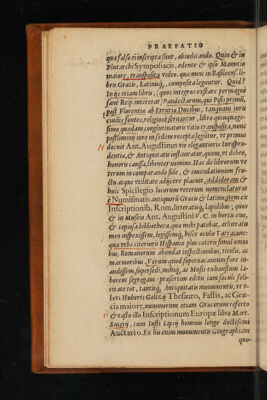 PRAEFATIO
quæ falso ei inscripta sunt, abiudicando. Quin & in
Plutarchi Symposiacis, edente & ipso Manutio
maiore, transposita video, quæ nunc in Basileens. li-
bris Græcis, Latinisq, composita leguntur. Quid?
In iis etiam libris, (quos integros exstare permagni
sane Reip. intererat) Pandectarum, qui Pisis primū,
post Florentiæ ab Etruriæ Ducibus, tanquam iuris
ciuilis fontes, religiosè seruantur, libro quinquage-
simo quædam longissimatum vatio transposita, nunc
postremum iure in sedem recepta legitur, vt primus
docuit Ant. Augustinus vir elegantioris Iurispru-
dentia, & Antiquitatis instaurator, quem, vt debeo,
honoris caussa, libenter nomino. Hæc de librorum ve-
terum in comparando side, & emendationum fru-
ctu atque vtilitate adijcere placuit. Addideram &
huic Spicilegio locorum veterum nomenclaturas
è Numismatis antiquis Græcis & Latinis, item ex
Inscriptionib. Rom. litteratisq, lapidibus; quos
& in Musæo Ant. Augustini P. C. in hortis eius,
& copiosa bibliotheca, quæ mihi patebat, & alibi in
meo inspexissem, legissemq, bis ex oculis Tarracone:
quæ vrbs citerioris Hispaniæ plus ceteris simul omni
bus, Romanorum abundat inscriptionibus, titulis, ac
marmoribus. Verum quod superuacuum fore in-
audissem superesse, mihiq, ac Musis exhaustum la-
borem segregaui: præsertim editis iam facili feli-
citate tot, tantisq, Antiquitatis monumentis, vt v-
beri Huberti Goltzij Thesauro, Fastis, ac Græ-
cia maiore, nummorum etiam Græcorum referto
& vasto illo Inscriptionum Europæ libro Mart.
Smetij, cum Iusti Lipsij hominis longe doctissimi
Auctario. Ex his enim monumentis Geographiam
quo-